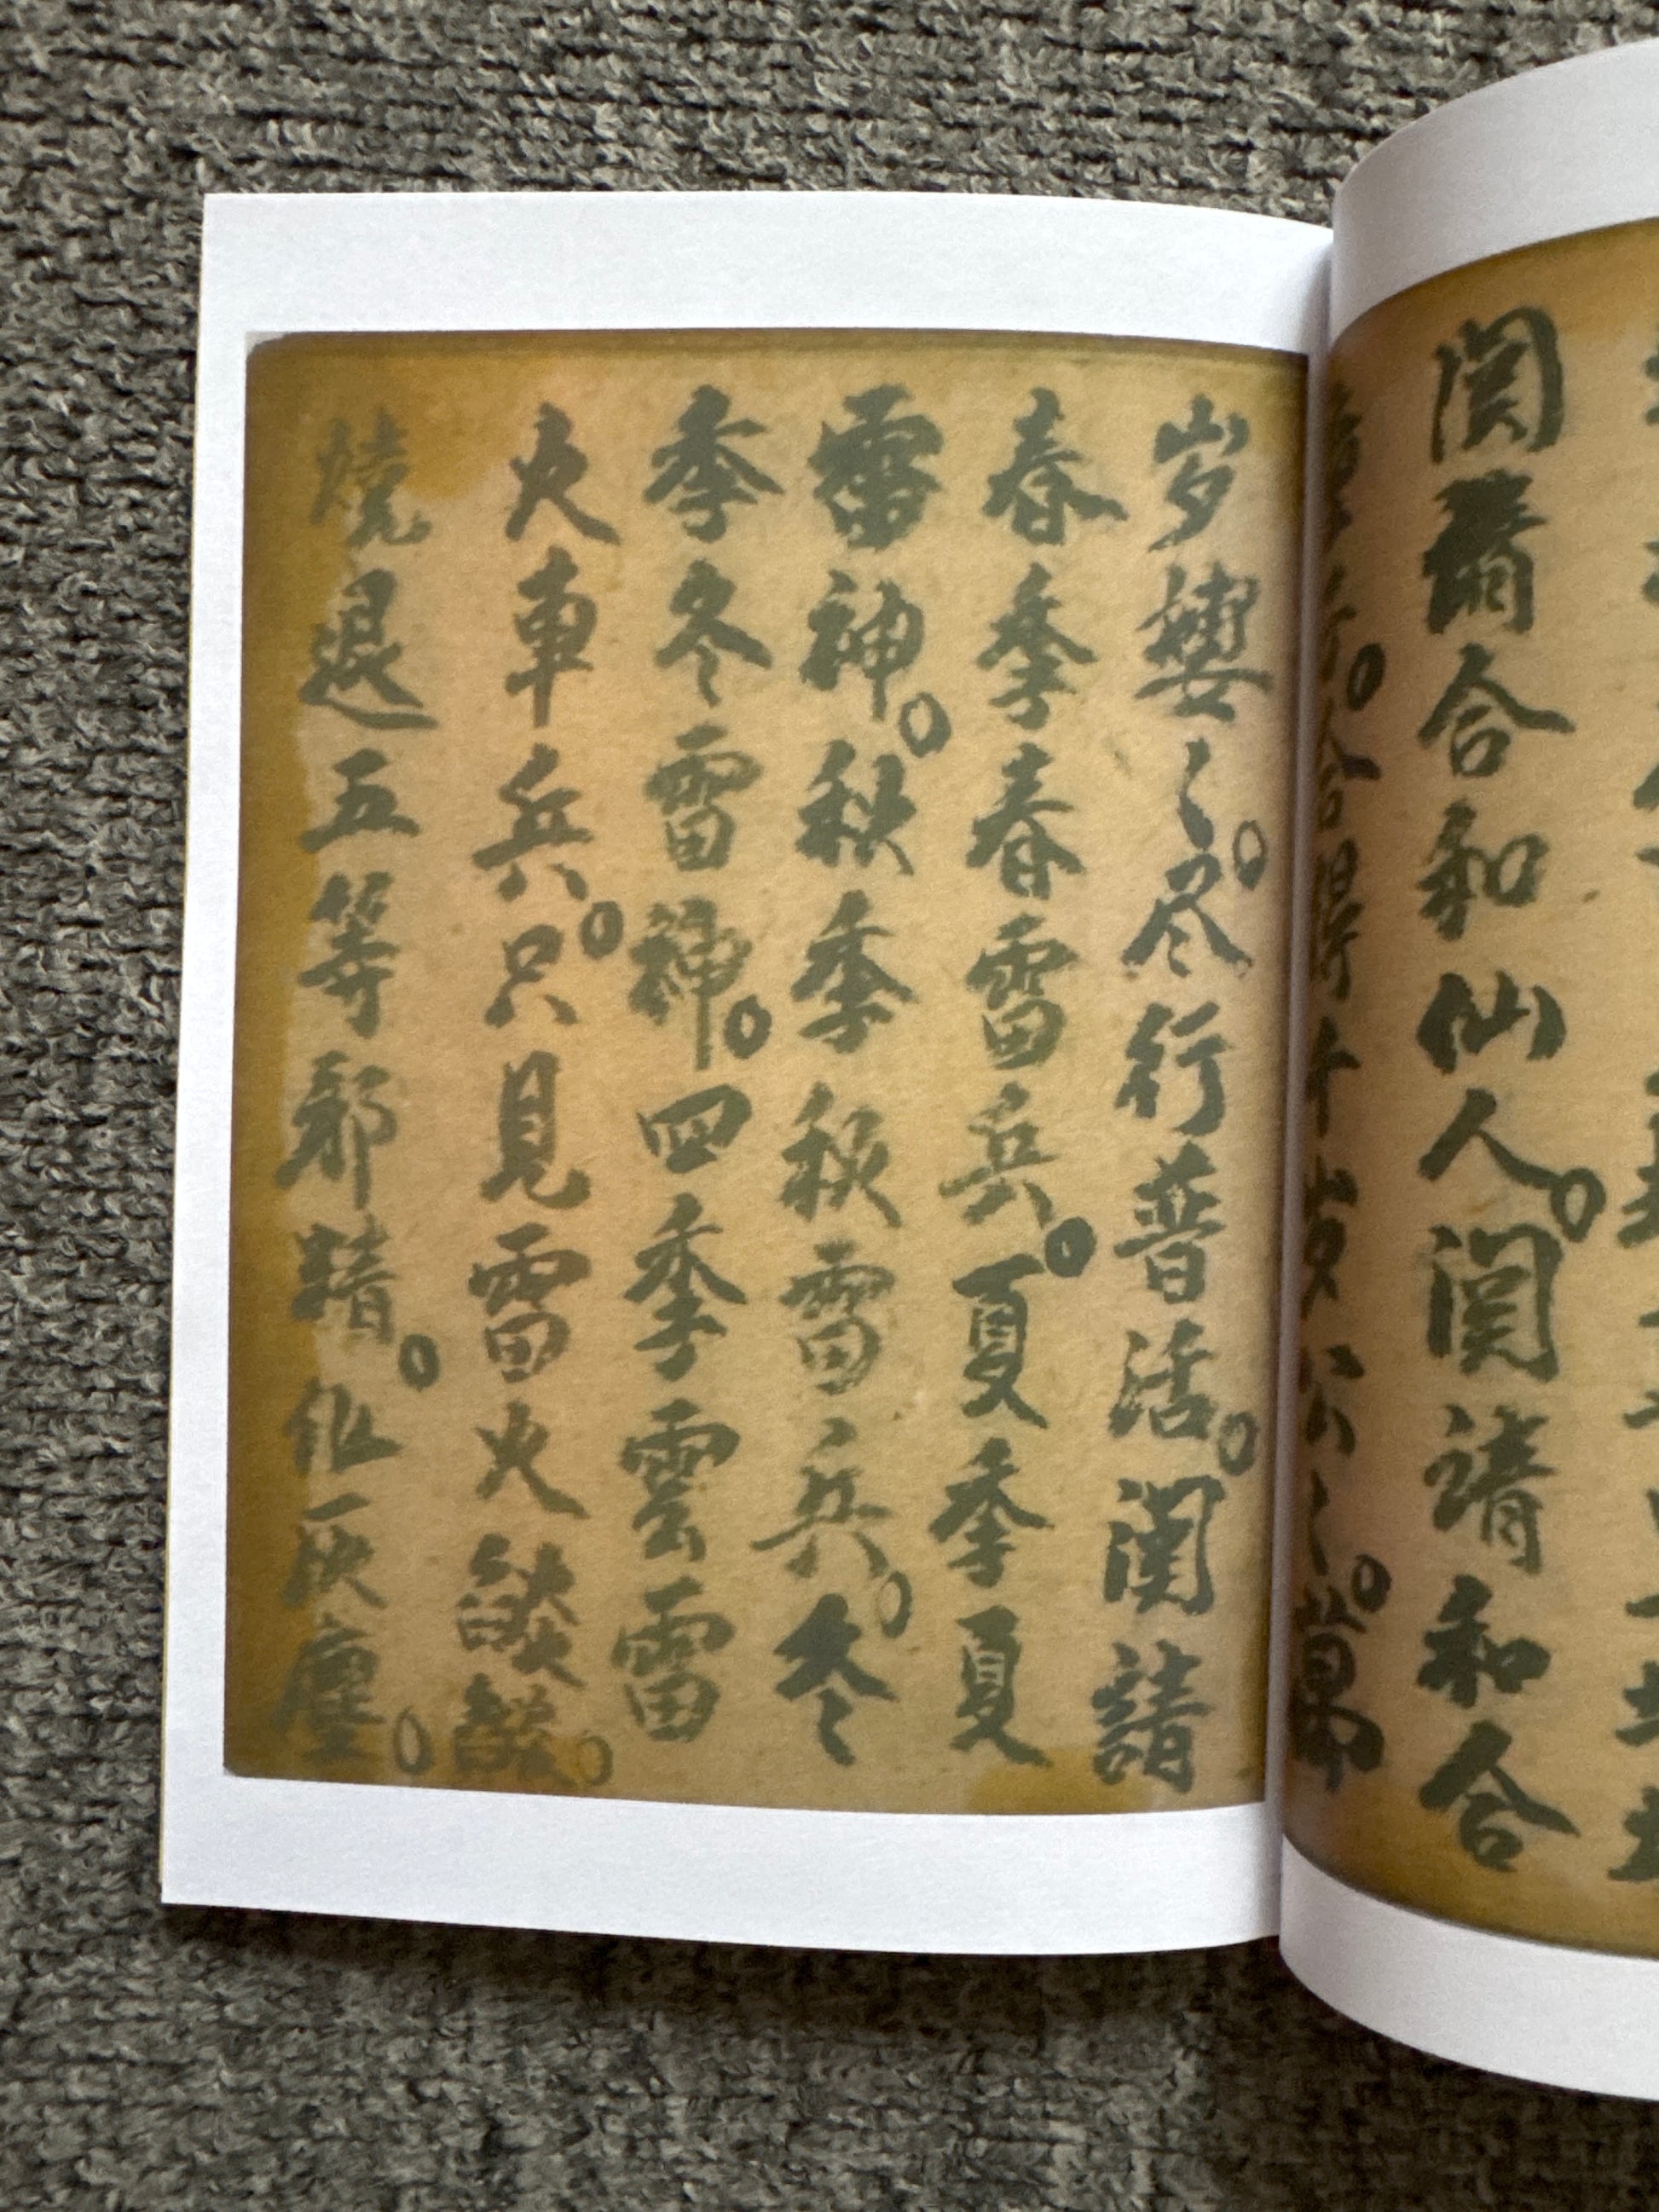 関合和仙人。関請和合
合得千岁公々。萬
岁婆々。尽行普活。関請
春季春雷兵。夏季夏
雷神。秋季秋雷兵。冬
季冬雷神。四季雲雷
火車兵。只見雷火燄燄。
燒退五等邪精。化灰塵。